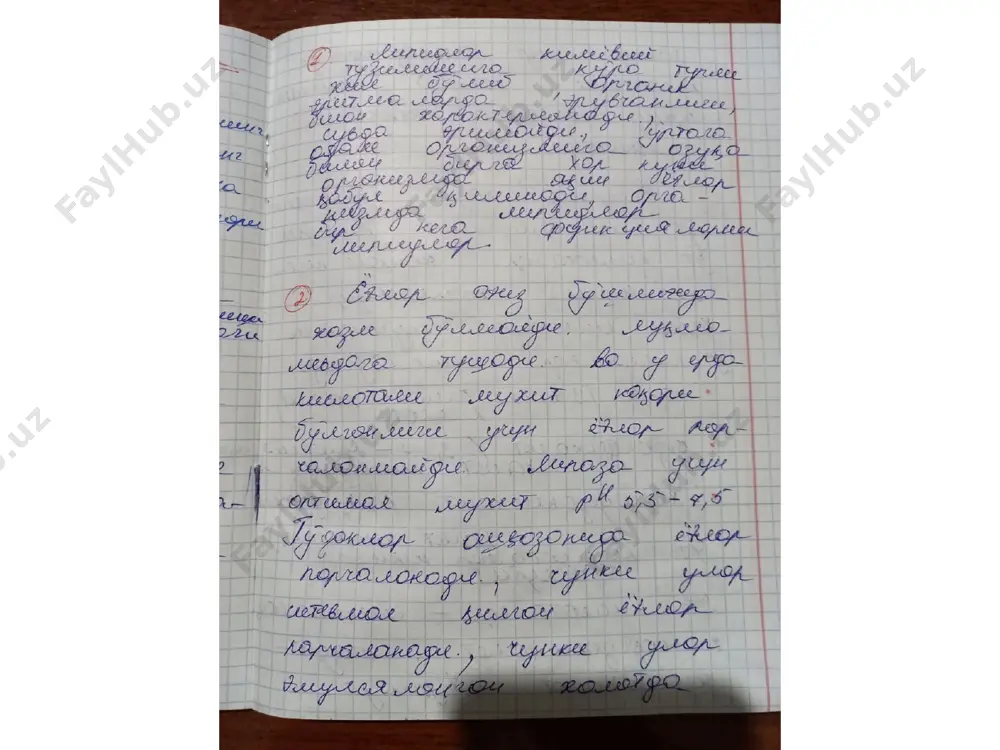 1 Липидлар кимёвий
тузилишига кўра турли
хил бўлиб органик
эритмаларда эрувчанлиги,
билан характерланади,
сувда эримайди, ўртача
одам организмига озуқа
билан бирга хар куни
организмда ёғлар
қабул қилинади, орга-
низмда липидлар
бир нега функцияларни
липидлар.
2 Ёғлар оғиз бўшлиғида
хазм бўлмайди. луқма
меъдага тушади. ва у ерда
кислотали мухит юқори
бўлгонлиги учун ёғлар пар-
чаланмайди. Липаза учун
оптимал мухит рН 5,5-7,5
Гўдаклар ошқозонида ёғлар
парчаланади, чунки улар
истеъмол қилган ёғлар
парчаланади, чунки улар
эмулсялангон холатда
FaylHub.uz
FaylHub.uz
FaylHub.uz
FaylHub.uz
FaylHub.uz
FaylHub.uz